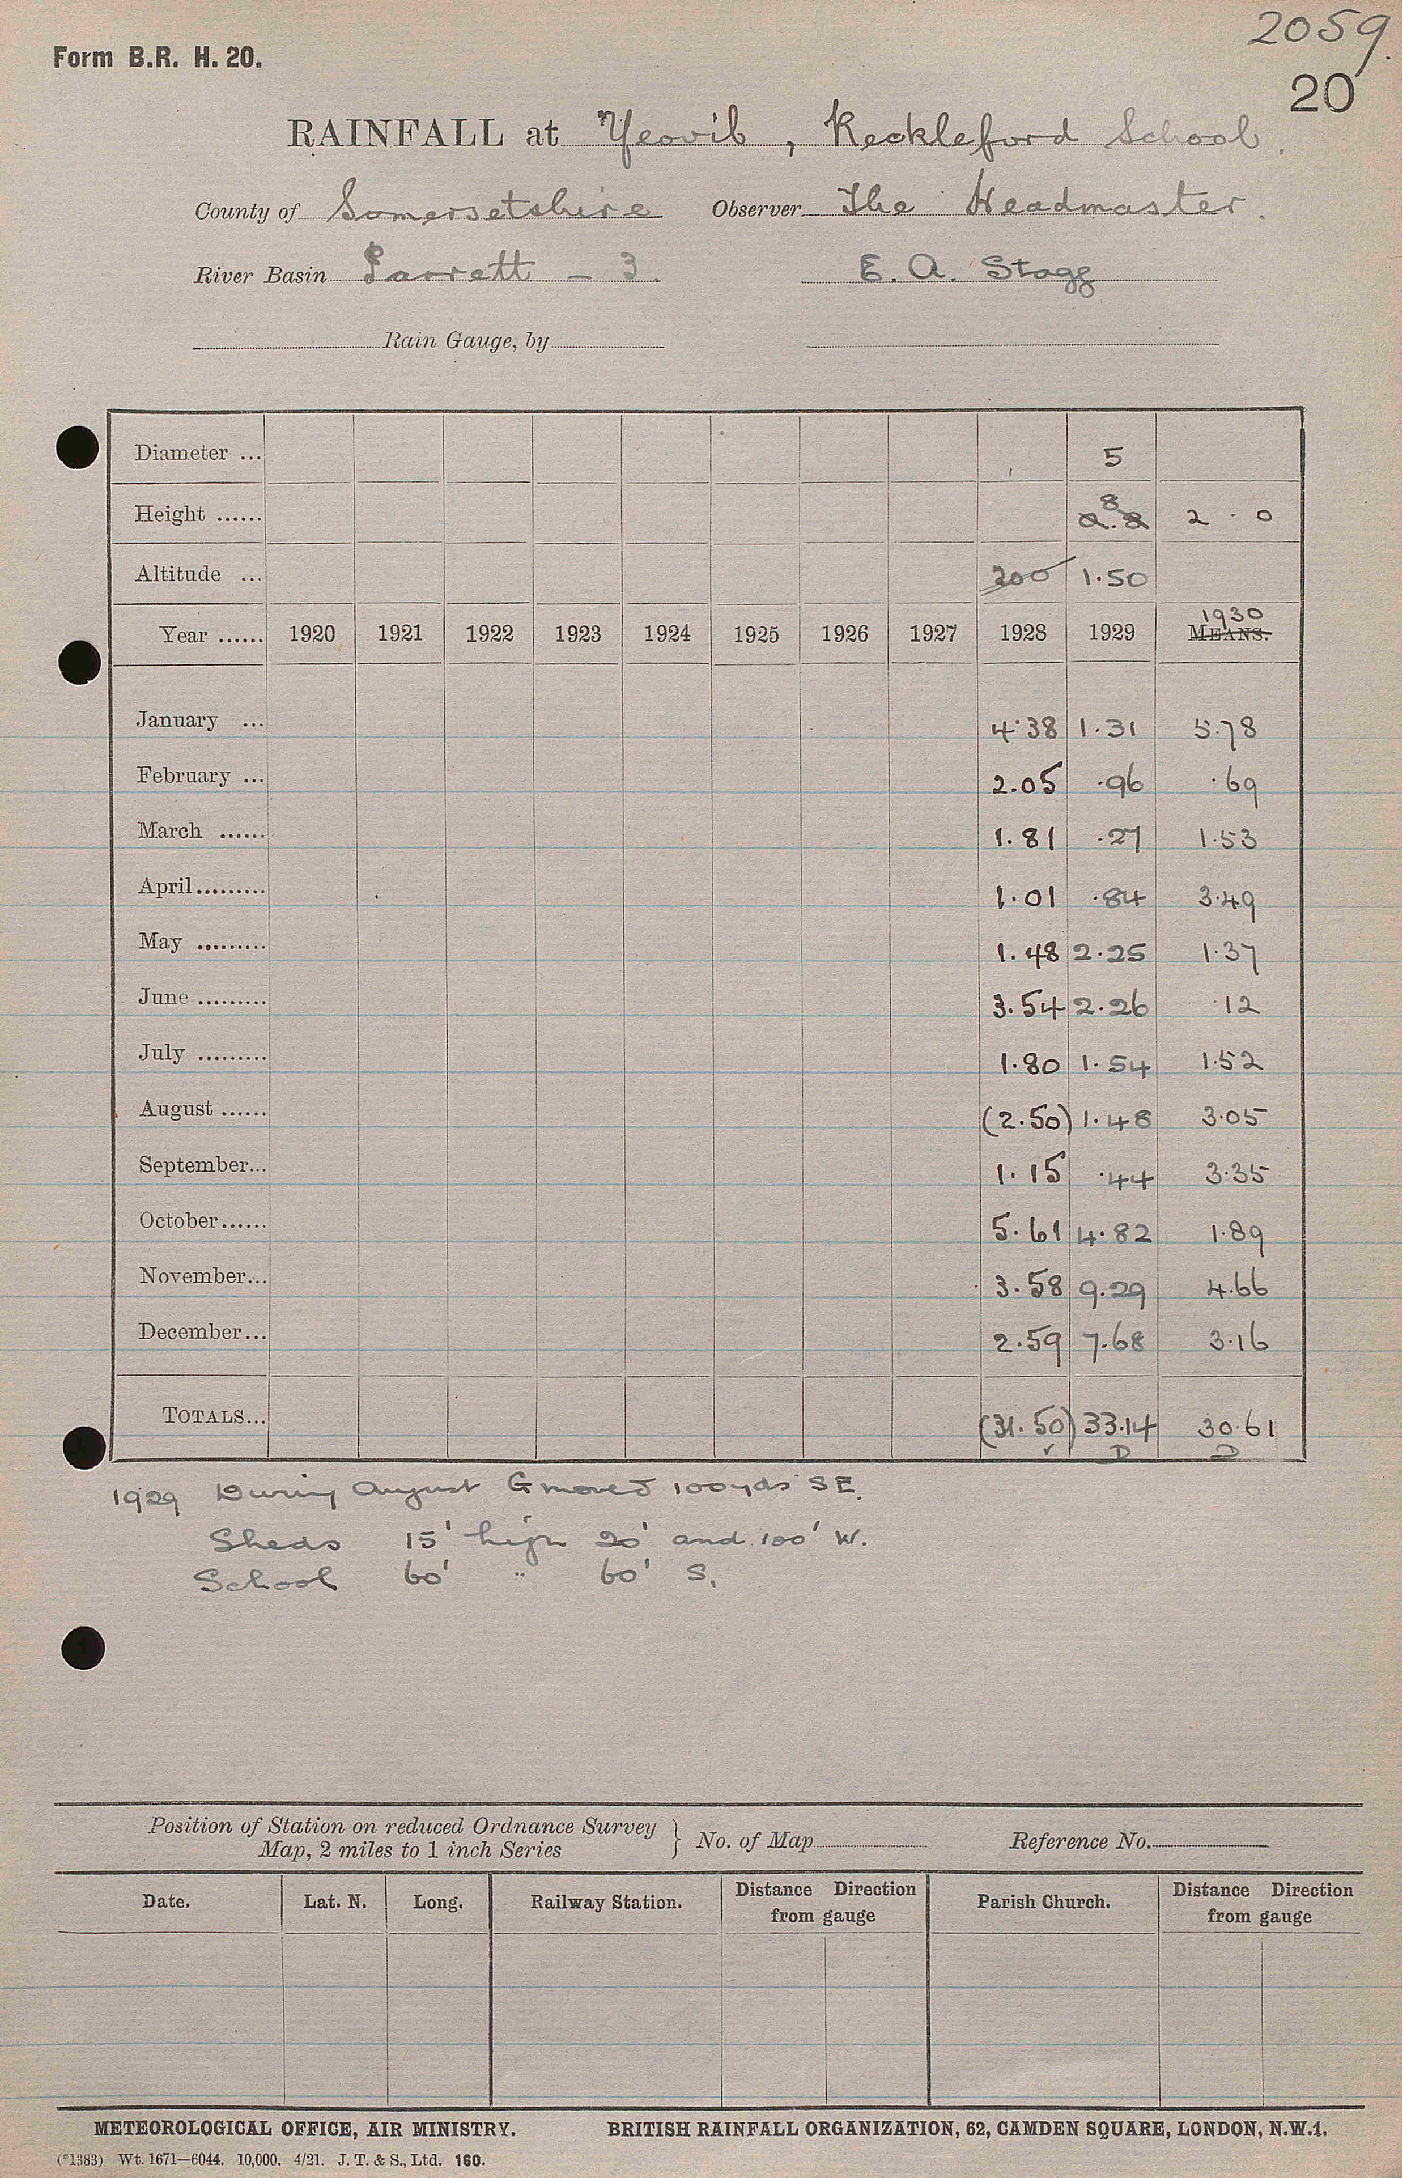 2059.
Form B.R. H. 20.
20
RAINFALL at Yeovil, Reckleford School.
County of Somersetshire Observer The Headmaster.
River Basin Parrett - 3. E. A. Stagg
Rain Gauge, by
Diameter ... 5
Height ...... 8 2 . 0
Altitude ... 200 1.50
Year ...... 1920 1921 1922 1923 1924 1925 1926 1927 1928 1929 MEANS. 1930
January ... 4.38 1.31 5.78
February ... 2.05 .96 .69
March ...... 1.81 .27 1.53
April ......... 1.01 .84 3.49
May ......... 1.48 2.25 1.37
June ......... 3.54 2.26 .12
July ......... 1.80 1.54 1.52
August ...... (2.50) 1.48 3.05
September... 1.15 .44 3.35
October ...... 5.61 4.82 1.89
November... 3.58 9.29 4.66
December... 2.59 7.68 3.16
TOTALS... (31.50) 33.14 30.61
D D
1929 During August G moved 100yds SE.
Sheds 15' high 20' and 100' W.
School 60' " 60' S.
Position of Station on reduced Ordnance Survey Map, 2 miles to 1 inch Series } No. of Map Reference No.
Date. Lat. N. Long. Railway Station. Distance Direction from gauge Parish Church. Distance Direction from gauge
METEOROLOGICAL OFFICE, AIR MINISTRY. BRITISH RAINFALL ORGANIZATION, 62, CAMDEN SQUARE, LONDON, N.W.1.
(*1383) Wt. 1671—6044. 10,000. 4/21. J. T. & S., Ltd. 160.